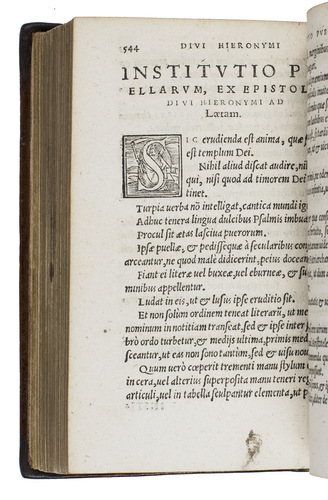 544 DIVI HIERONYMI
INSTITVTIO P
ELLARVM, EX EPISTOL
DIVI HIERONYMI AD
Lætam.
SIC erudienda est anima, quæ
est templum Dei.
Nihil aliud discat audire, nil
qui, nisi quod ad timorem Dei
tinet.
Turpia verba nõ intelligat, cantica mundi ig
Adhuc tenera lingua dulcibus Psalmis imbua
Procul sit ætas lasciua puerorum.
Ipsæ puellæ, & pedissequæ à secularibus con
arceantur, ne quod male didicerint, peius docean
Fiant ei literæ vel buxeæ, vel eburneæ, & su
minibus appellentur.
Ludat in eis, ut & lusus ipse eruditio sit.
Et non solùm ordinem teneat literarũ, ut me
nominum in notitiam transeat, sed & ipse inter
brò ordo turbetur, & medijs ultima, primis med
sceantur, ut eas non sono tantùm, sed & uisu nou
Quum uerò cœperit trementi manu stylum
in cera, uel alterius superposita manu teneri re
articuli, uel in tabella sculpantur elementa, ut p